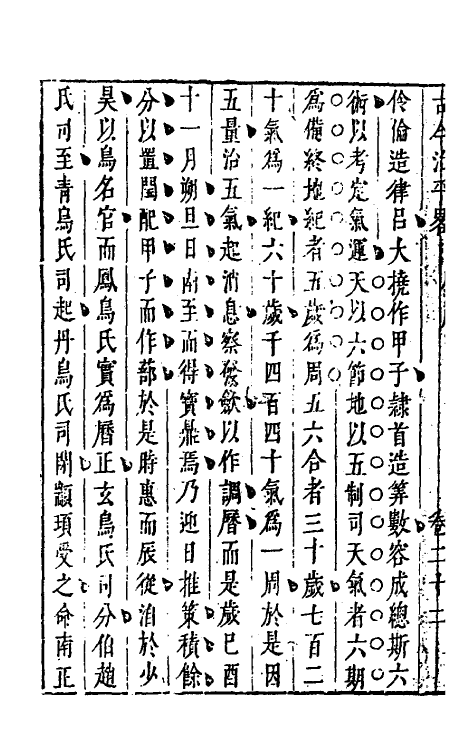 伶倫造律呂大撓作甲子隸首造筭數容成總斯六
術以考定氣運天以六節地以五制司天氣者六期
為備終地紀者五歲為周五六合者三十歲七百二
十氣為一紀六十歲千四百四十氣為一周於是因
五量治五氣起消息察發斂以作調曆而是歲己酉
十一月朔旦日南至而得寶鼎焉乃迎日推策積餘
分以置閏配甲子而作蔀於是時惠而辰從洎於少
昊以鳥名官而鳳鳥氏實為曆正玄鳥氏司分伯趙
氏司至青鳥氏司起丹鳥氏司閉顓頊受之命南正